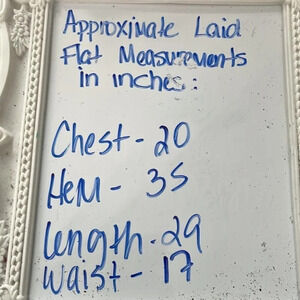 Approximate Laid
Flat Measurements
in inches:
Chest - 20
Hem - 35
Length - 29
Waist - 17